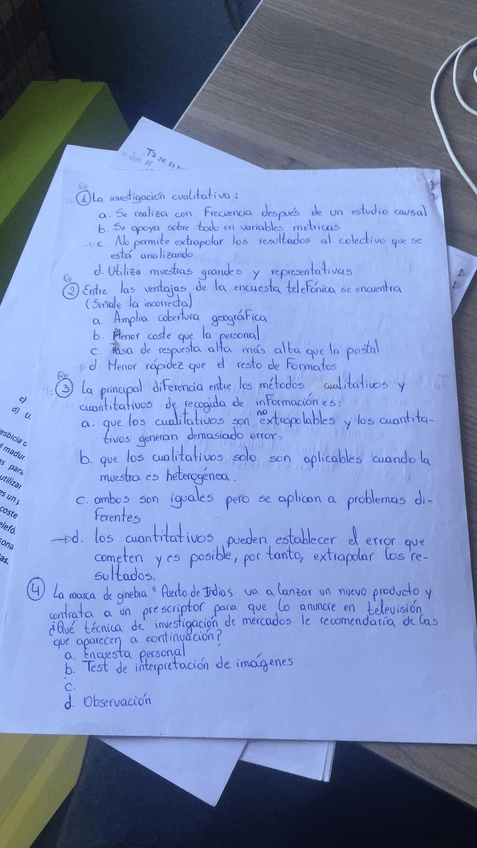 T3
① La investigación cualitativa:
a. Se realiza con Frecuencia después de un estudio causal
b. Se apoya sobre todo en variables metricas
c. No permite extrapolar los resultados al colectivo que se
está analizando
d. Utiliza muestras grandes y representativas
② Entre las ventajas de la encuesta telefónica se encuentra
(Señale la incorrecta)
a. Amplia cobertura geográfica
b. Menor coste que la personal
c. Tasa de respuesta alta más alta que la postal
d. Menor rápidez que el resto de Formatos
③ La principal diferencia entre los métodos cualitativos y
cuantitativos de recogida de información es:
a. que los cualitativos son no extropolables y los cuantita-
tivos generan demasiado error.
b. que los cualitativos solo son aplicables cuando la
muestra es heterogénea.
c. ambos son iguales pero se aplican a problemas di-
ferentes
→d. los cuantitativos pueden establecer el error que
cometen y es posible, por tanto, extrapolar los re-
sultados.
④ La marca de ginebra "Puerto de Indias va a lanzar un nuevo producto y
contrata a un prescriptor para que lo anuncie en televisión
¿Qué técnica de investigación de mercados le recomendaría de las
que aparecen a continuación?
a. Encuesta personal
b. Test de interpretación de imágenes
c.
d. Observación
c)
d) U.